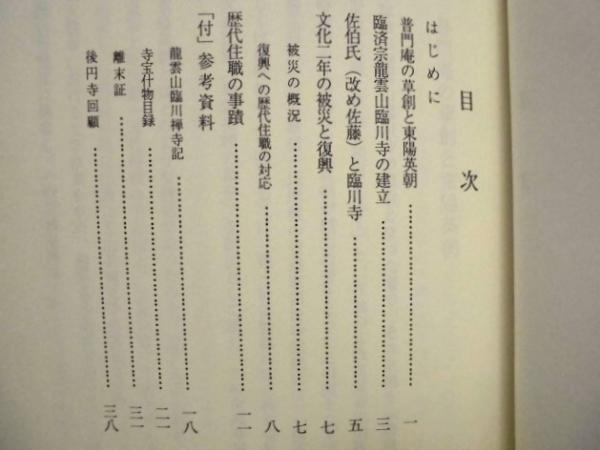 目次
はじめに
普門庵の草創と東陽英朝……………………一
臨済宗龍雲山臨川寺の建立……………………三
佐伯氏(改め佐藤)と臨川寺……………………五
文化二年の被災と復興……………………七
被災の概況……………………七
復興への歴代住職の対応……………………八
歴代住職の事蹟……………………一一
「付」参考資料
龍雲山臨川禅寺記……………………一八
寺宝什物目録……………………二一
離末証……………………三一
後円寺回顧……………………三八